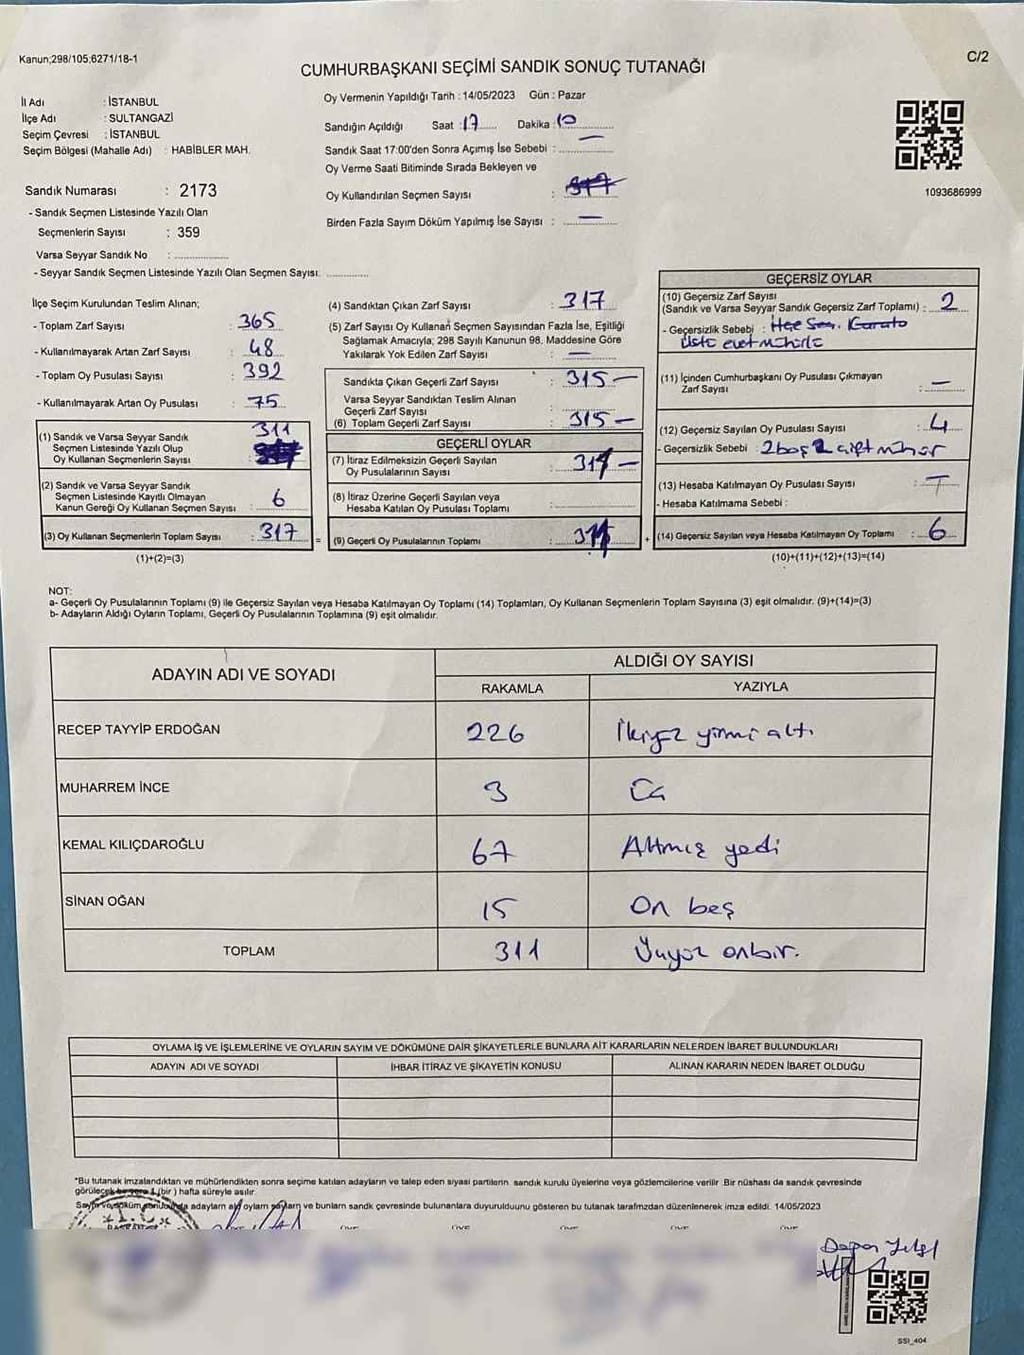 Kanun;298/105;6271/18-1
C/2
CUMHURBAŞKANI SEÇİMİ SANDIK SONUÇ TUTANAĞI
İl Adı : İSTANBUL
İlçe Adı : SULTANGAZİ
Seçim Çevresi : İSTANBUL
Seçim Bölgesi (Mahalle Adı) : HABİBLER MAH.
Oy Vermenin Yapıldığı Tarih : 14/05/2023 Gün : Pazar
Sandığın Açıldığı Saat : 17 Dakika : 10
Sandık Saat 17:00'den Sonra Açımış İse Sebebi : —
Oy Verme Saati Bitiminde Sırada Bekleyen ve
Oy Kullandırılan Seçmen Sayısı :
Birden Fazla Sayım Döküm Yapılmış İse Sayısı : —
1093686999
Sandık Numarası : 2173
- Sandık Seçmen Listesinde Yazılı Olan
Seçmenlerin Sayısı : 359
Varsa Seyyar Sandık No :
- Seyyar Sandık Seçmen Listesinde Yazılı Olan Seçmen Sayısı:
İlçe Seçim Kurulundan Teslim Alınan;
- Toplam Zarf Sayısı : 365
- Kullanılmayarak Artan Zarf Sayısı : 48
- Toplam Oy Pusulası Sayısı : 392
- Kullanılmayarak Artan Oy Pusulası : 75
311
(1) Sandık ve Varsa Seyyar Sandık
Seçmen Listesinde Yazılı Olup
Oy Kullanan Seçmenlerin Sayısı :
(2) Sandık ve Varsa Seyyar Sandık
Seçmen Listesinde Kayıtlı Olmayan
Kanun Gereği Oy Kullanan Seçmen Sayısı : 6
(3) Oy Kullanan Seçmenlerin Toplam Sayısı : 317
(1)+(2)=(3)
(4) Sandıktan Çıkan Zarf Sayısı : 317
(5) Zarf Sayısı Oy Kullanan Seçmen Sayısından Fazla İse, Eşitliği
Sağlamak Amacıyla; 298 Sayılı Kanunun 98. Maddesine Göre
Yakılarak Yok Edilen Zarf Sayısı : —
Sandıkta Çıkan Geçerli Zarf Sayısı : 315 —
Varsa Seyyar Sandıktan Teslim Alınan
Geçerli Zarf Sayısı :
(6) Toplam Geçerli Zarf Sayısı : 315 —
GEÇERLİ OYLAR
(7) İtiraz Edilmeksizin Geçerli Sayılan
Oy Pusulalarının Sayısı : 311 —
(8) İtiraz Üzerine Geçerli Sayılan veya
Hesaba Katılan Oy Pusulası Toplamı :
= (9) Geçerli Oy Pusulalarının Toplamı : 311
GEÇERSİZ OYLAR
(10) Geçersiz Zarf Sayısı
(Sandık ve Varsa Seyyar Sandık Geçersiz Zarf Toplamı) : 2
- Geçersizlik Sebebi :
üstü evet mühürlü
(11) İçinden Cumhurbaşkanı Oy Pusulası Çıkmayan
Zarf Sayısı : —
(12) Geçersiz Sayılan Oy Pusulası Sayısı : 4
- Geçersizlik Sebebi 2 boş 2 çift mühür
(13) Hesaba Katılmayan Oy Pusulası Sayısı :
- Hesaba Katılmama Sebebi :
+ (14) Geçersiz Sayılan veya Hesaba Katılmayan Oy Toplamı : 6
(10)+(11)+(12)+(13)=(14)
NOT:
a- Geçerli Oy Pusulalarının Toplamı (9) ile Geçersiz Sayılan veya Hesaba Katılmayan Oy Toplamı (14) Toplamları, Oy Kullanan Seçmenlerin Toplam Sayısına (3) eşit olmalıdır. (9)+(14)=(3)
b- Adayların Aldığı Oyların Toplamı, Geçerli Oy Pusulalarının Toplamına (9) eşit olmalıdır.
ADAYIN ADI VE SOYADI ALDIĞI OY SAYISI
RAKAMLA YAZIYLA
RECEP TAYYİP ERDOĞAN 226 İkiyüz yirmi altı
MUHARREM İNCE 3 Üç
KEMAL KILIÇDAROĞLU 67 Altmış yedi
SİNAN OĞAN 15 On beş
TOPLAM 311 Üçyüz onbir.
OYLAMA İŞ VE İŞLEMLERİNE VE OYLARIN SAYIM VE DÖKÜMÜNE DAİR ŞİKAYETLERLE BUNLARA AİT KARARLARIN NELERDEN İBARET BULUNDUKLARI
ADAYIN ADI VE SOYADI İHBAR İTİRAZ VE ŞİKAYETİN KONUSU ALINAN KARARIN NEDEN İBARET OLDUĞU
*Bu tutanak imzalandıktan ve mühürlendikten sonra seçime katılan adayların ve talep eden siyasi partilerin sandık kurulu üyelerine veya gözlemcilerine verilir. Bir nüshası da sandık çevresinde
görülecek bir yere 1 (bir) hafta süreyle asılır.
adayların oyların ve bunların sandık çevresinde bulunanlara duyurulduunu gösteren bu tutanak tarafımızdan düzenlenerek imza edildi. 14/05/2023
T.C.
SSI_404